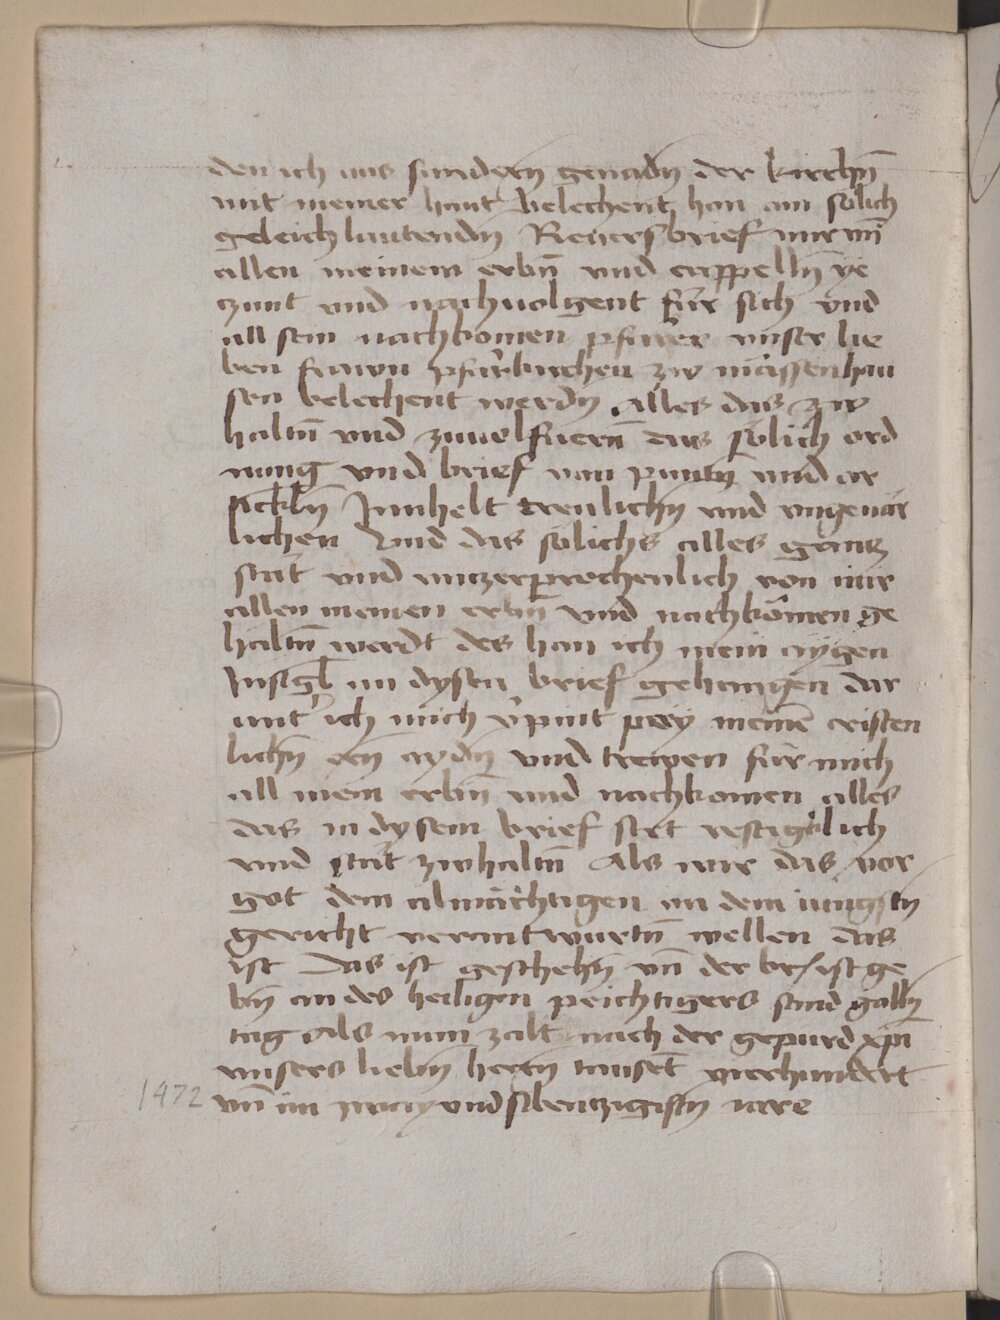 den ich aus sundern genadn der kirchn̄
mit meiner hant belechent han ain sölich
geleich lautendn Reuersbrief mir vn̄
allen meinem erbn̄ vnd cappelln̄ ye
czunt vnd nachuolgent für sich vnd
all sein nachkomen pfarrer vnser lie
ben frawn pfarrkirchen zw mässenhau
sen belechent werdn alles das zw
haltn̄ vnd zuuolfuern̄ das sölich ord
nung vnd brief von punttn̄ vnd ar
tickln̄ Innhelt trewlichn vnd vngeuär
lichen Vnd das sölichs alles gantz
stät vnd vnzerprochenlich von mir
allen meinen erbn̄ vnd nachkomen ge
haltn̄ werdt des han ich mein aygen
Insigl an dysen brief gehangen dar
unt' ich mich v'pint pey meinē cristen
lichn̄ ern̄ aydn̄ vnd trewen für mich
all mein erbn̄ vnd nachkomen alles
das in dysem brief stet vestigklich
vnd stät zwhaltn̄ Als wir das vor
got dem almächtigen an dem iungstn
gericht verantwurtn̄ wellen das
ist Das ist geschehn̄ vn̄ der br/ ist ge
bn̄ an des heiligen peichtigers sand galln̄
tag Als man zalt nach der gepurd xp̄i
vnsers liebn herrn tausent vierhundert
1472 vn̄ im zway vnd sibentzigistn iare